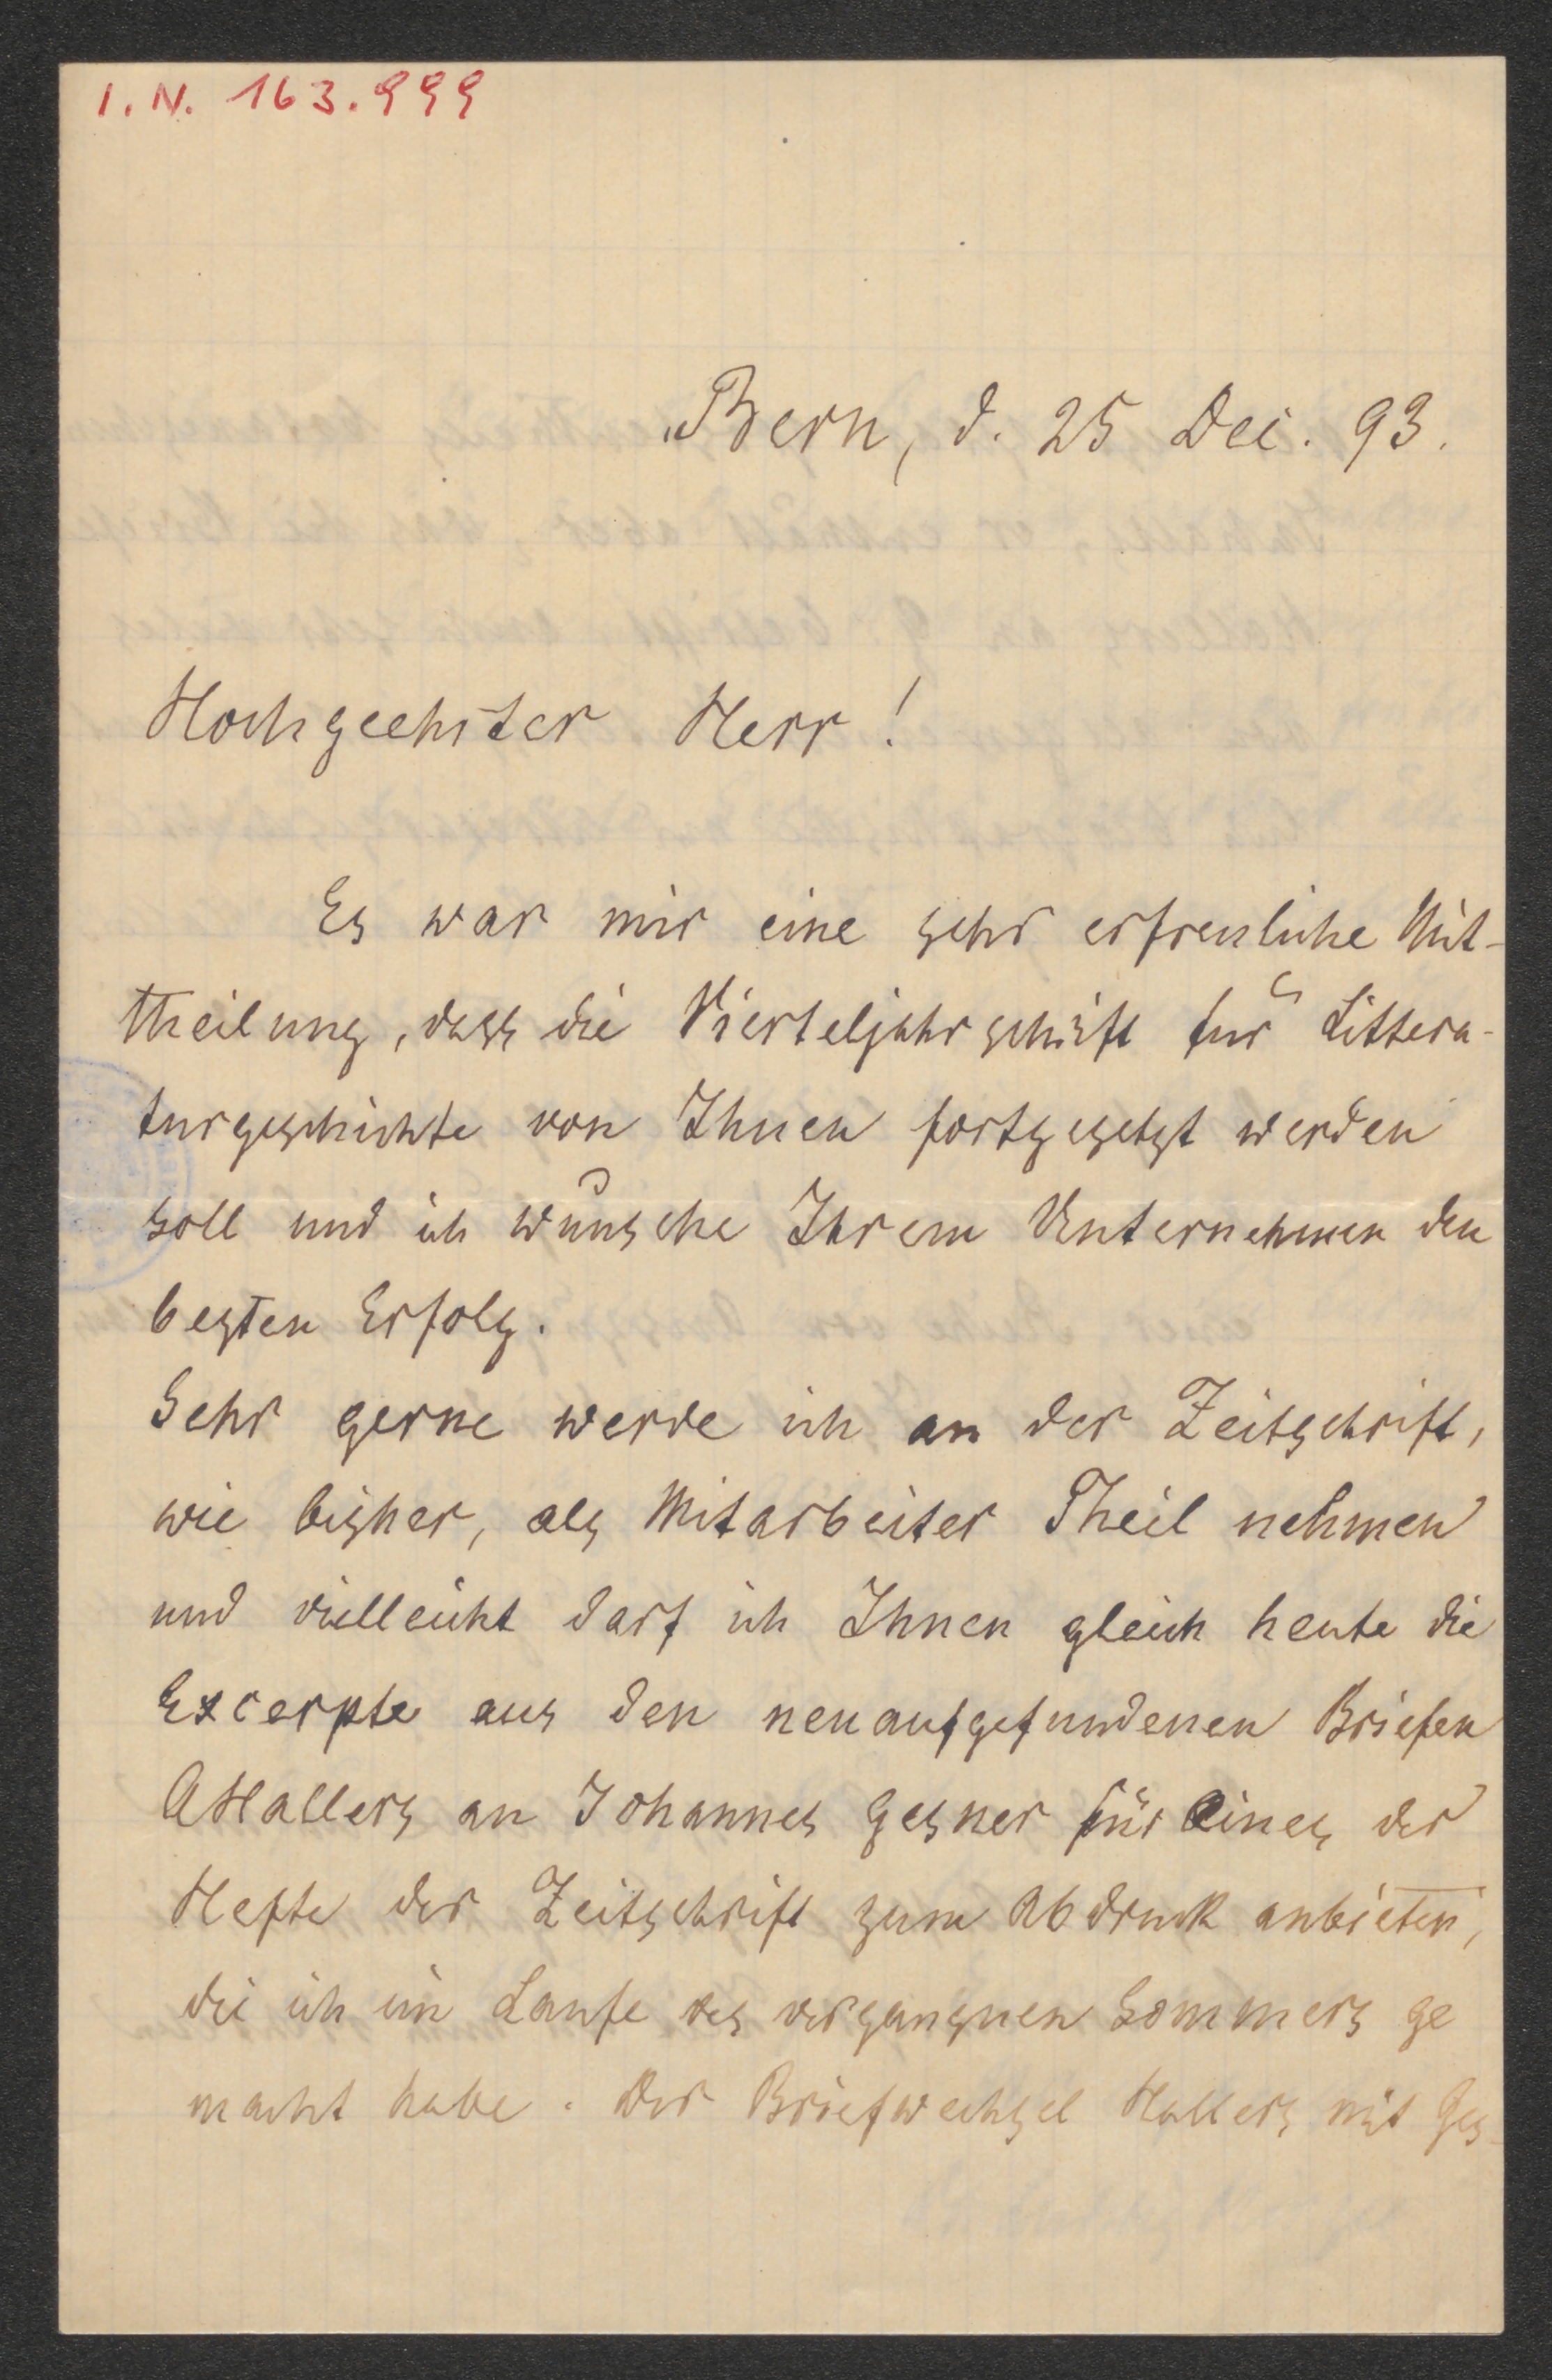 I.N. 163.999
Bern, d. 25 Dec. 93.
Hochgeehrter Herr!
Es war mir eine sehr erfreuliche Mit-
theilung, dass die Vierteljahrschrift für Littera-
turgeschichte von Ihnen fortgesetzt werden
soll und ich wünsche Ihrem Unternehmen den
besten Erfolg.
Sehr gerne werde ich an der Zeitschrift,
wie bisher, als Mitarbeiter Theil nehmen
und vielleicht darf ich Ihnen gleich heute die
Excerpte aus den neuaufgefundenen Briefen
AHallers an Johannes Gesner für eines der
Hefte der Zeitschrift zum Abdruck anbieten,
die ich im Laufe des vergangnen Sommers ge
macht habe. Der Briefwechsel Hallers mit Ges-